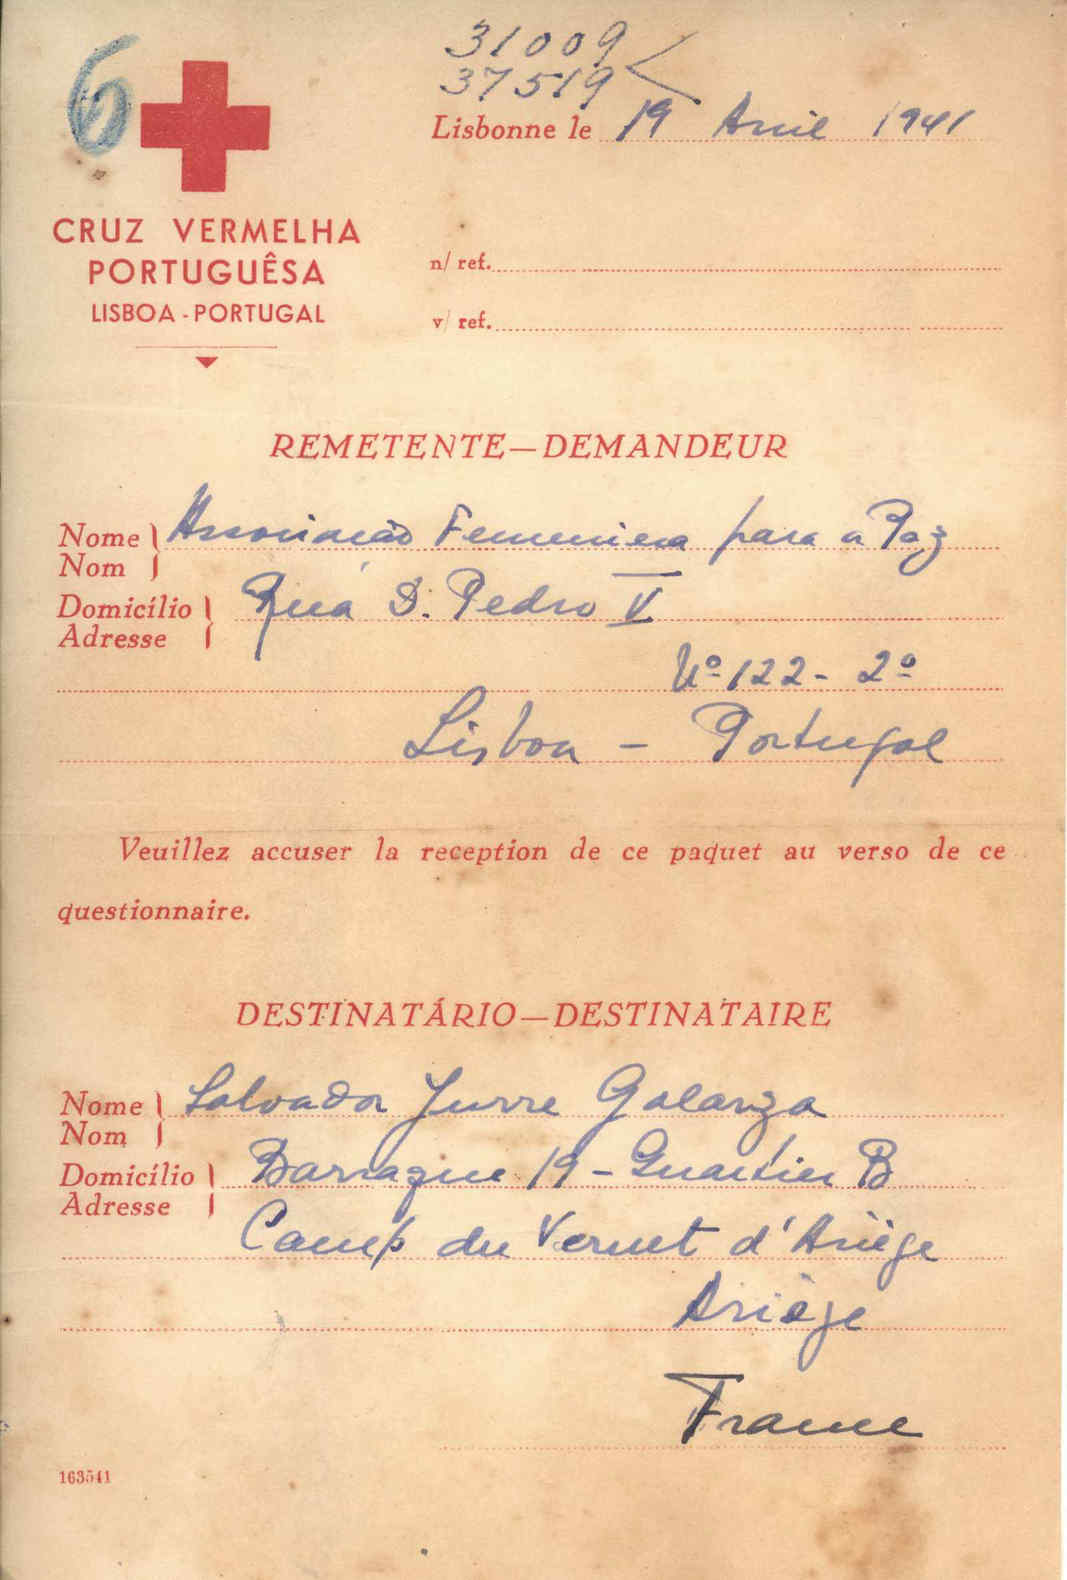 6
31009
37519
Lisbonne le 19 Avril 1941
CRUZ VERMELHA
PORTUGUÊSA
LISBOA - PORTUGAL
n/ ref.
v/ ref.
REMETENTE—DEMANDEUR
Nome Associação Feminina para a Paz
Nom
Domicílio Rua D. Pedro V
Adresse
Nº 122 - 2º
Lisboa - Portugal
Veuillez accuser la reception de ce paquet au verso de ce
questionnaire.
DESTINATÁRIO—DESTINATAIRE
Nome Salvador Jurre Galarza
Nom
Domicílio Barraque 19 - Quartier B
Adresse
Camp du Vernet d'Ariège
Ariège
France
163541